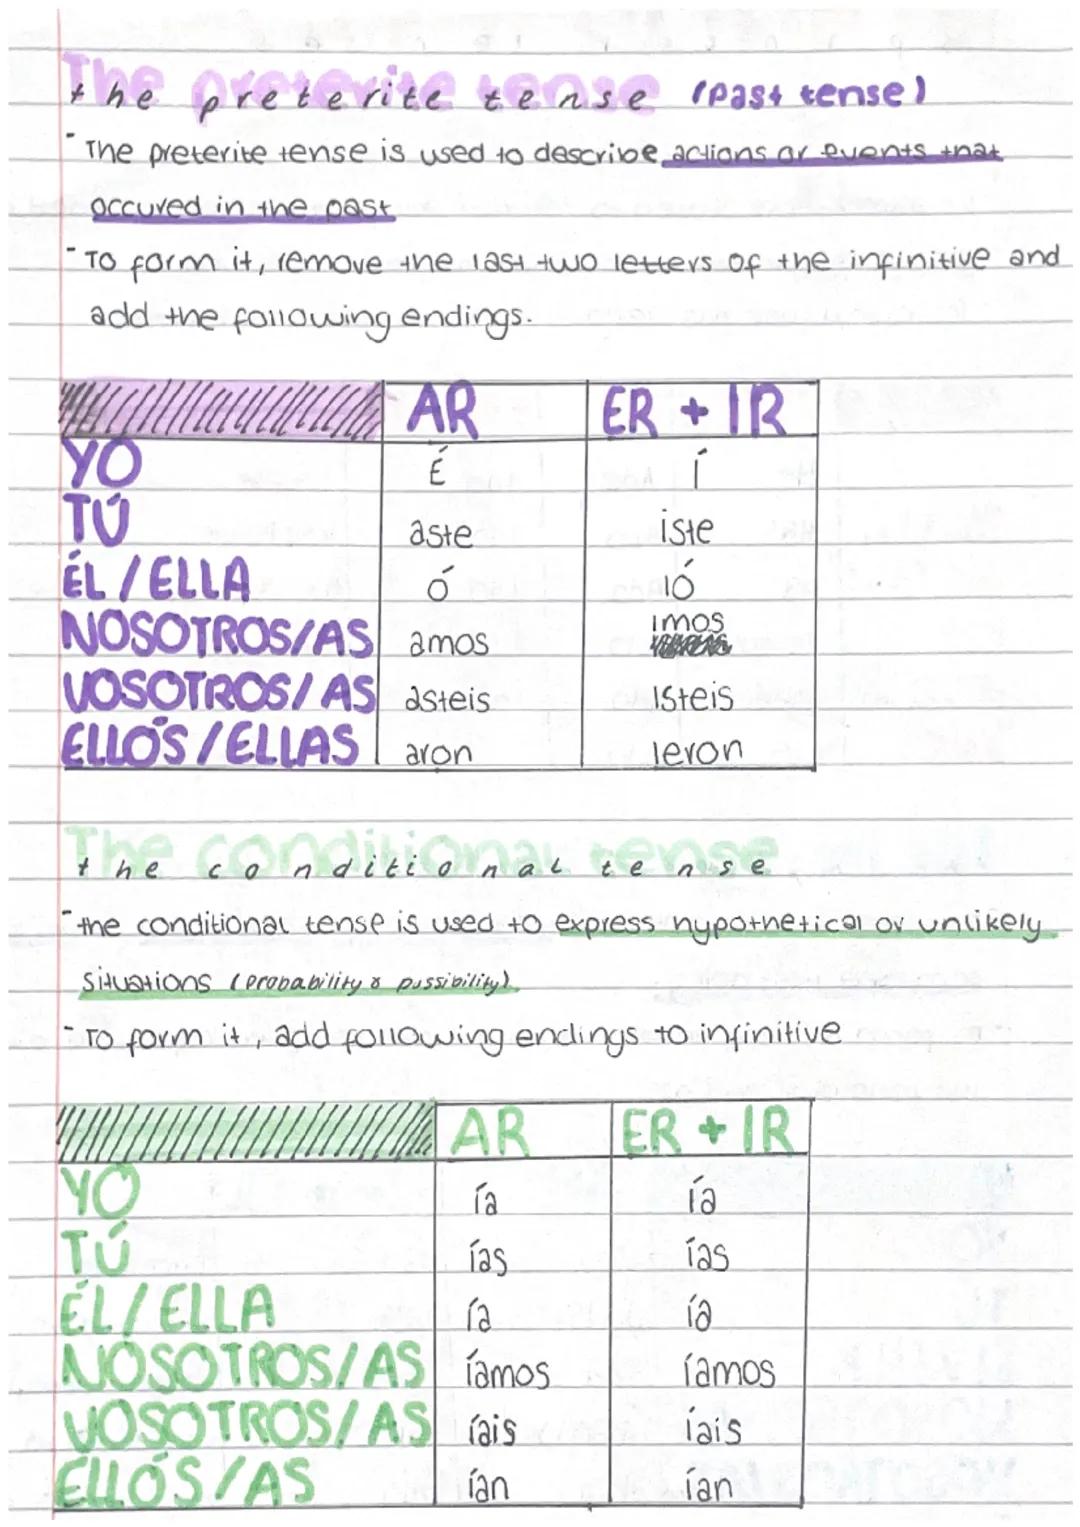 The preterite tense (past tense)
- The preterite tense is used to describe actions or events that
occured in the past
- To form it, remove the last two letters of the infinitive and
add the following endings.
AR ER + IR
YO É Í
TÚ aste iste
ÉL / ELLA Ó IÓ
NOSOTROS/AS amos imos
VOSOTROS/AS asteis isteis
ELLOS / ELLAS aron ieron
The conditional tense
- the conditional tense is used to express hypothetical or unlikely
situations (probability & possibility).
- To form it, add following endings to infinitive
AR ER + IR
YO ía ía
TÚ ías ías
ÉL / ELLA ía ía
NOSOTROS/AS íamos íamos
VOSOTROS/AS íais íais
ELLOS/AS ían ían